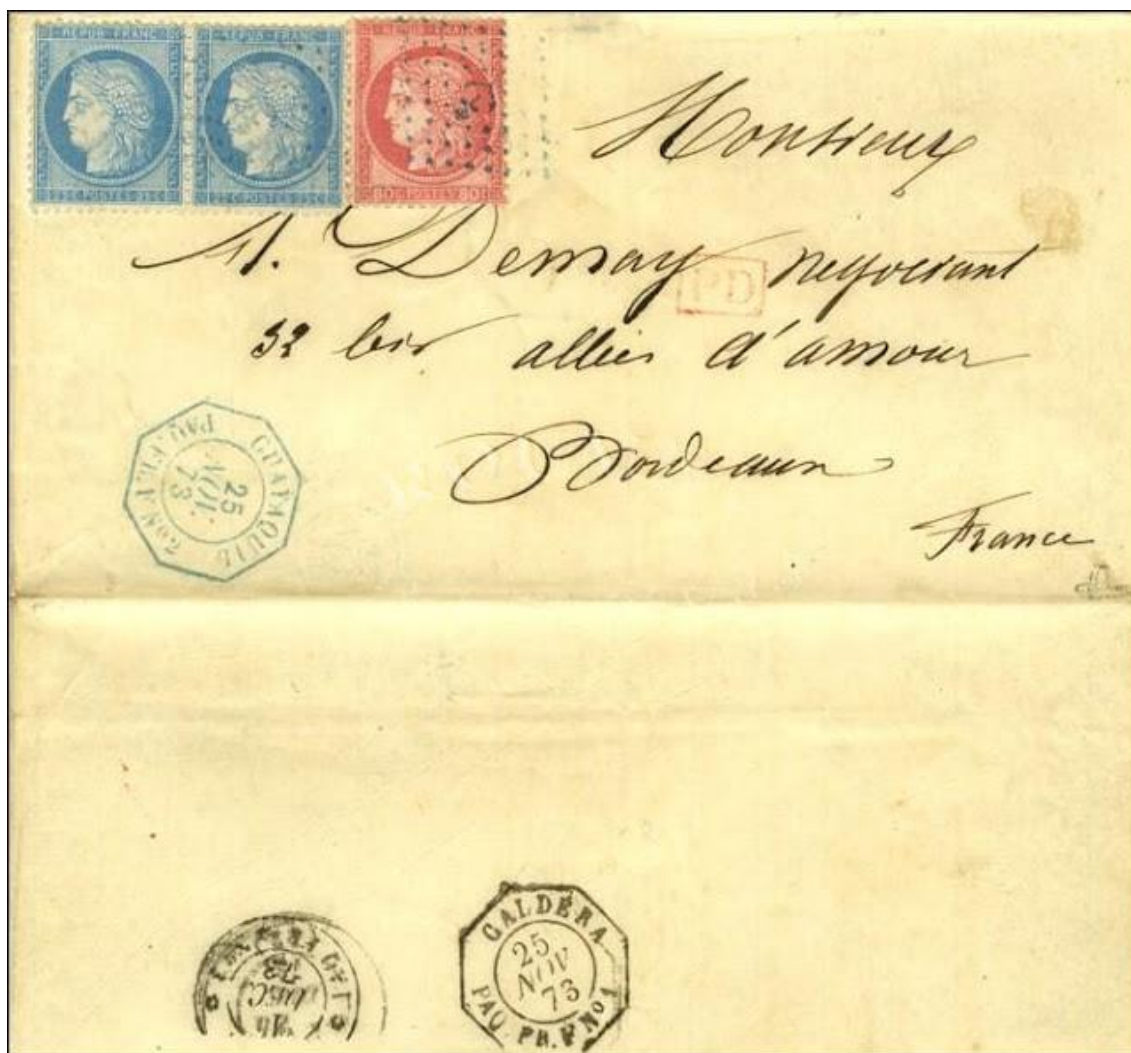 REPUB FRANC REPUB FRANC REPUB FRANC
25 C POSTES 25 C 25 C POSTES 25 C 80 C POSTES 80 C
Monsieur
A. Demay négociant
PD
32 bis allées d'amour
Bordeaux
France
GUAYAQUIL
25
NOV.
73
PAQ. FR. F No 2
CALDERA
25
NOV
73
PAQ. FR. F No 1
73